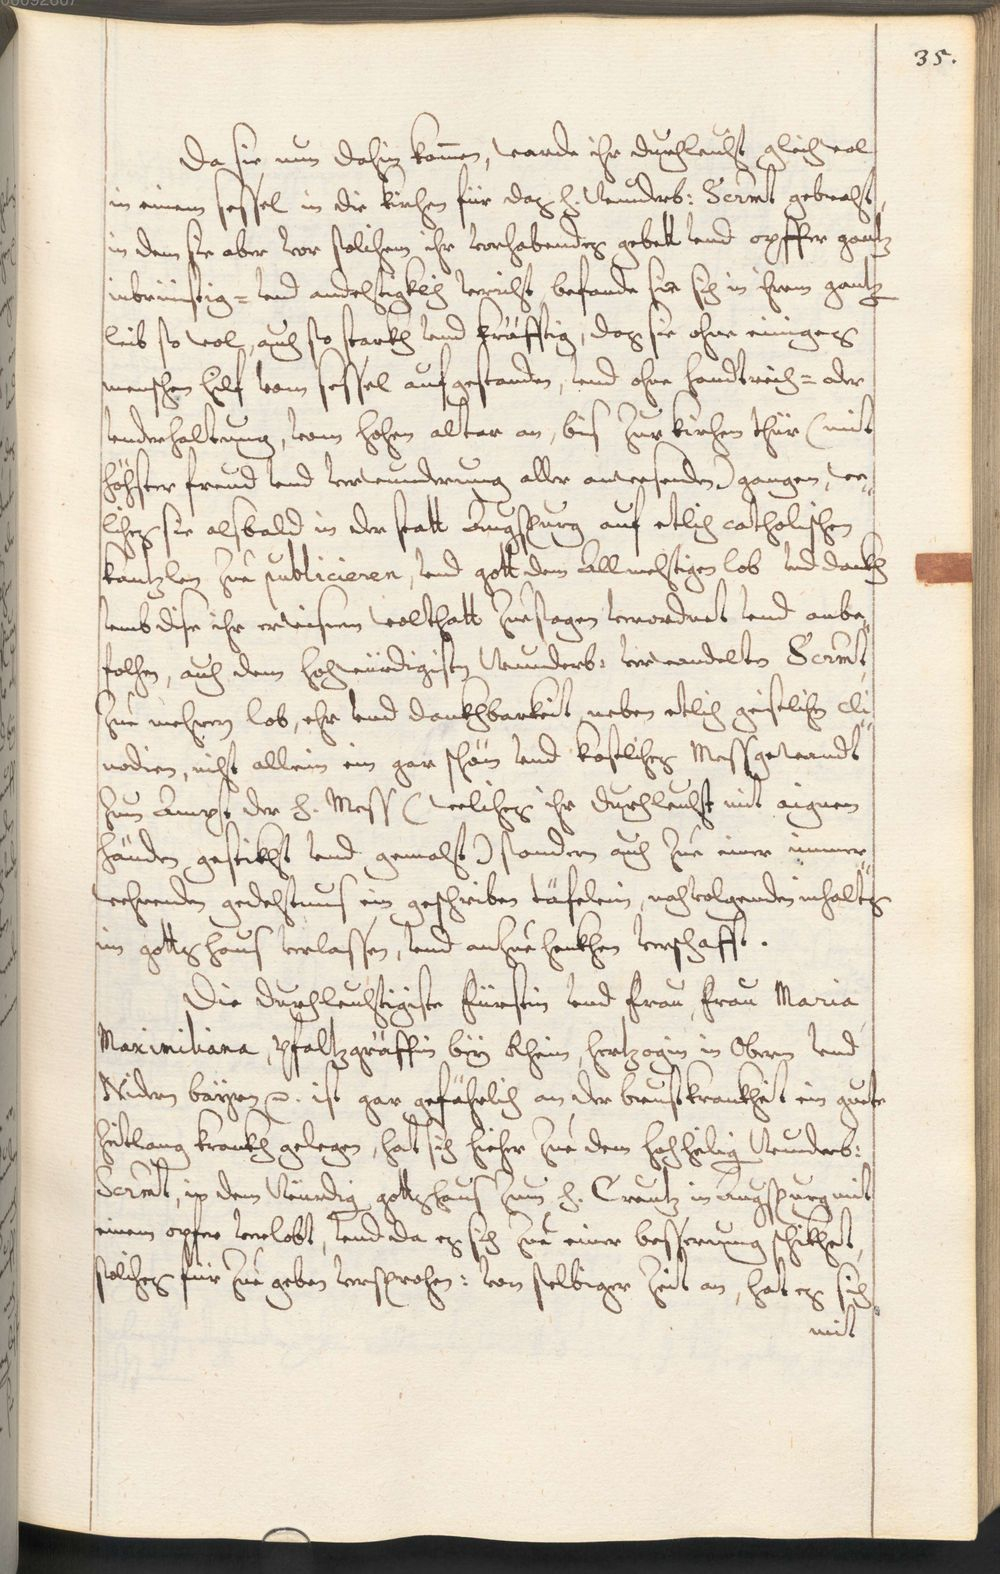 35.
Da sie nun dahin kom̄en, warde ihr durchleucht gleichwol
in einem sessel in die kirchen für das h. Wunderb: Scrmt gebracht,
in dem sie aber vor solichem ihr vorhabendes gebett vnd opffer gantz
inbrünstig= vnd andechtigklich verricht, befande sie sich in ihrem gantz
leib so wol, auch so starckh vnd kräfftig, das sie ohne einiges
menschen hilf vom sessel aufgestanden, vnd ohne handtreich= oder
vnderhaltung, vom hohen altar an, bis zur kirchen thür (mit
höchster freud vnd verwunderung aller anwesenden) gangen, we„
liches sie alsbald in der statt Augspurg auf etlich catholischen
kantzlen zue publicieren, vnd gott dem Allmechtigen lob vnd danckh
vmb dise ihr erwisene wolthatt zuesagen verordnet vnd anbe„
folhen, auch dem hochwürdigisten Wunderb: verwandelten Scrmt,
zue mehrern lob, ehr vnd danckhbarkeit neben etlich geistlichen cli„
nodien, nicht allein ein gar schön vnd kostliches Messgewandt
zum Ampt der h. Mess (weliches ihr durchleucht mit aignen
händen gestickht vnd gemacht) sondern auch zue einer immer„
wehrenden gedechtnus ein geschriben täfelein, nachvolgenden inhalts
im gottshaus verlassen, vnd anzuehenckhen verschafft.
Die durchleuchtigiste fürstin vnd frau, frau Maria
Maximiliana, Pfaltzgräffin bey Rhein, hertzogin in Obern vnd
Nidern bayren ꝛc. ist gar gefährlich an der brustkranckheit ein guete
zeitlang kranckh gelegen, hat sich hieher zue dem hochheilig Wunderb:
Scrmt, in dem Würdig gottshaus zum h. Creutz in Augspurg mit
einem opfer verlobt, vnd da es sich zue einer besserung schickhet,
soliches für zue geben versprochen: von selbiger zeit an, hat es sich
mit